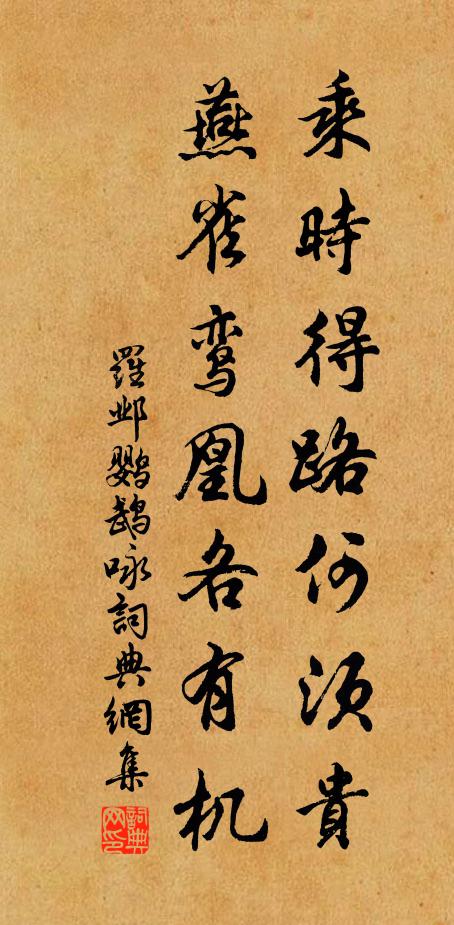 乘時得路何須貴
燕雀鸾凰各有机
羅邺鹦鹉咏詞典網集
詞典网印